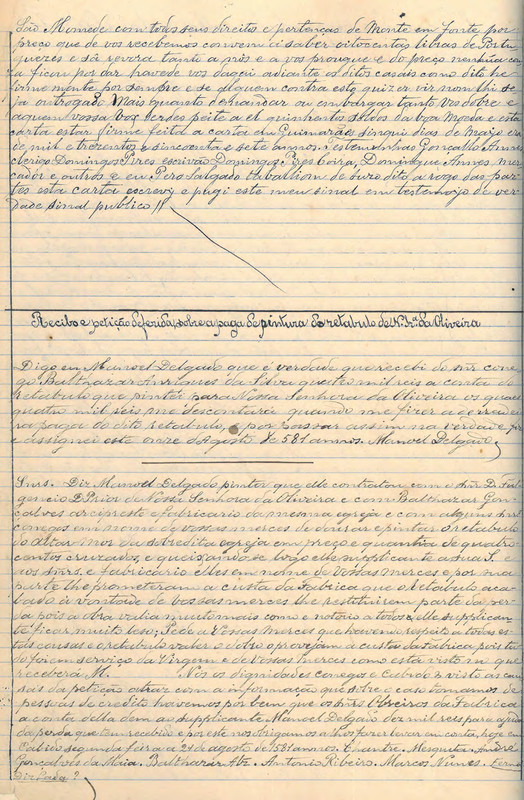 São Momede com todos seus direitos e pertenças de Monte em Fonte por
preço que de vos recebemos convem a saber oitocentas libras de Portu
guezes e sê revora tanto a nós e a vos prougue e do preço nenhũa cou
sa ficou por dar havede vos daqui adiante os ditos casais como dito he
firmemente por sempre e se alguem contra esto quizer vir nom lhi se
ja outrogado Mais quanto demandar ou embargar tanto vos dobre e
aquem vossa voz derdes peite a el quinhentos soldos da boa moeda e esta
carta estar firme feita a carta em Guimarães sinqui dias de Maijo era
de mil e trezentos e sincoenta e sete annos. Testemunhas Gonçallo Annes
clerigo Domingos Pires escrivão Domingos Pires Coira, Domingue Annes mer
cador e outros e eu Pero Salgado tabalhiom de suso dito a rogo das par
tes esta carta escrevy e pugi este meu sinal em testemoijo de ver
dade sinal publico //
Recibo e petição deferida, sobre a paga de pintura do retabulo de N.ª Sr.ª da Oliveira
Digo eu Manoel Delgado que é verdade que recebi do snr cone
go Balthazar Antunes da Silva quatro mil reis a conta do
retabulo que pintei para Nossa Senhora da Oliveira os quaes
quatro mil reis me descontará quando me fizer a derradei
ra paga do dito retabulo, e por passar assim na verdade fiz
e assignei este onze d'Agosto de 581 annos. Manoel Delgado
Snrs. Diz Manoel Delgado pintor que elle contratou com o snr D. Ful
gencio D. Prior de Nossa Senhora da Oliveira e com Balthazar Gon
çalves arcipreste e fabricario da mesma egreja e com alguns snrs
conegos em nome de vossas merces de dourar e pintar o retabulo
do altar mor da sobredita egreja em preço e quantia de quatro
centos cruzados, e queixando-se logo elle supplicante a sua S.
e aos snrs. e fabricario elles em nome de Vossas Merces e por sua
parte lhe prometeram a custa da Fabrica que o retabulo aca
bado á vontade de vossas merces lhe restituirem parte da per
da pois a obra valia muito mais como é notorio a todos e elle supplican
te ficar muito leso; Pede a Vossas Merces que havendo respeito a todas es
tas cousas e o retabulo valer o dobro o provejam á custa da fabrica pois tu
do foi em serviço da Virgem e de Vossas merces como está visto in que
receberá M. Nós os dignidades conegos e Cabido & visto as cau
sas da petição atraz com a informação que sobre o caso tomamos de
pessoas de credito havemos por bem que os snrs Obreiros da Fabrica
a conta della dem ao supplicante Manoel Delgado dez mil reis para ajuda
da perda que tem recebido e por este nos obrigamos a lhos fazer levar em conta, hoje em
Cabido segunda feira a 21 de agosto de 1581 annos. Chantre. Mesquita. André
Gonçalves da Maia. Balthazar Abr. Antonio Ribeiro. Marcos Nunes.